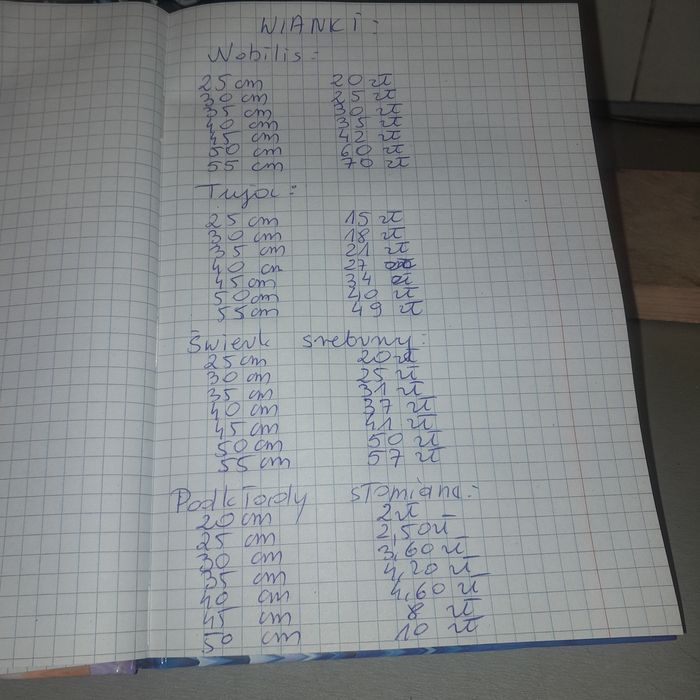 WIANKI:
Nobilis:
25 cm 20 zł
30 cm 25 zł
35 cm 30 zł
40 cm 35 zł
45 cm 42 zł
50 cm 60 zł
55 cm 70 zł
Tuja:
25 cm 15 zł
30 cm 18 zł
35 cm 21 zł
40 cm 27 zł
45 cm 34 zł
50 cm 40 zł
55 cm 49 zł
Świerk srebrny:
25 cm 20 zł
30 cm 25 zł
35 cm 31 zł
40 cm 37 zł
45 cm 41 zł
50 cm 50 zł
55 cm 57 zł
Podkłady słomiane:
20 cm 2 zł
25 cm 2,50 zł
30 cm 3,60 zł
35 cm 4,20 zł
40 cm 4,60 zł
45 cm 8 zł
50 cm 10 zł